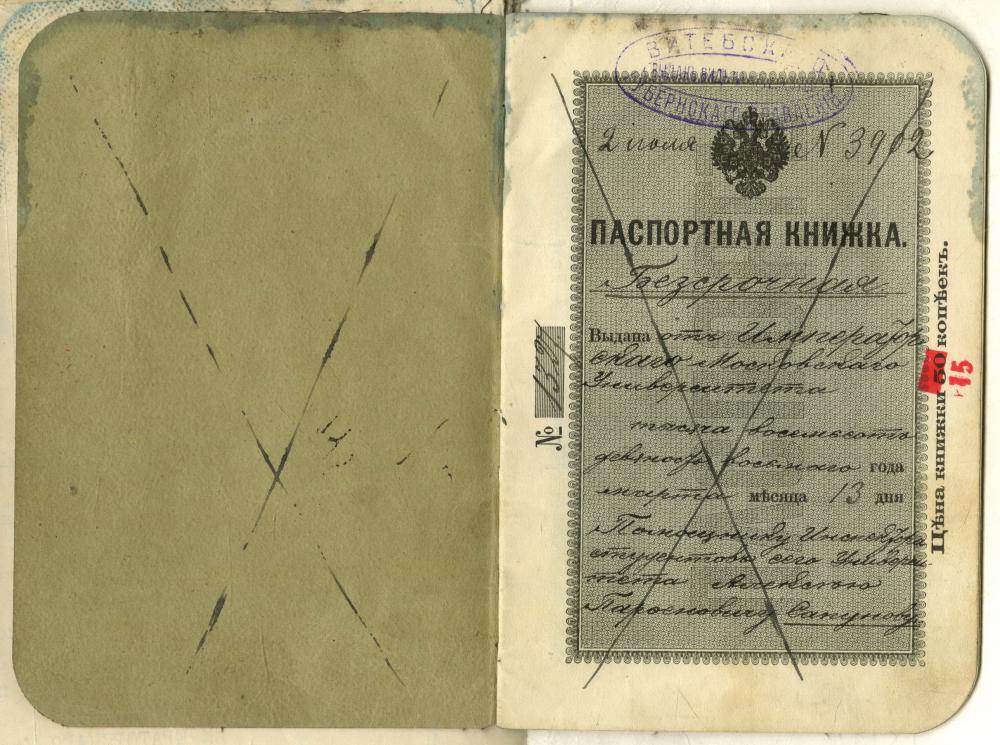 ВИТЕБСКА
ГУБЕРНСКАГО ПРАВЛЕНІЯ
2 іюля N 3902
ПАСПОРТНАЯ КНИЖКА.
Безсрочная
Выдана отъ Император
скаго Московскаго
Университета
тысяча восемьсотъ
девяносто восьмаго года
марта мѣсяца 13 дня
Помощнику Инспектора
студентовъ сего Универси-
тета Алексѣю
Парѳеновичу Сапунову
№ 152
Цѣна книжки 50 копѣекъ.
15